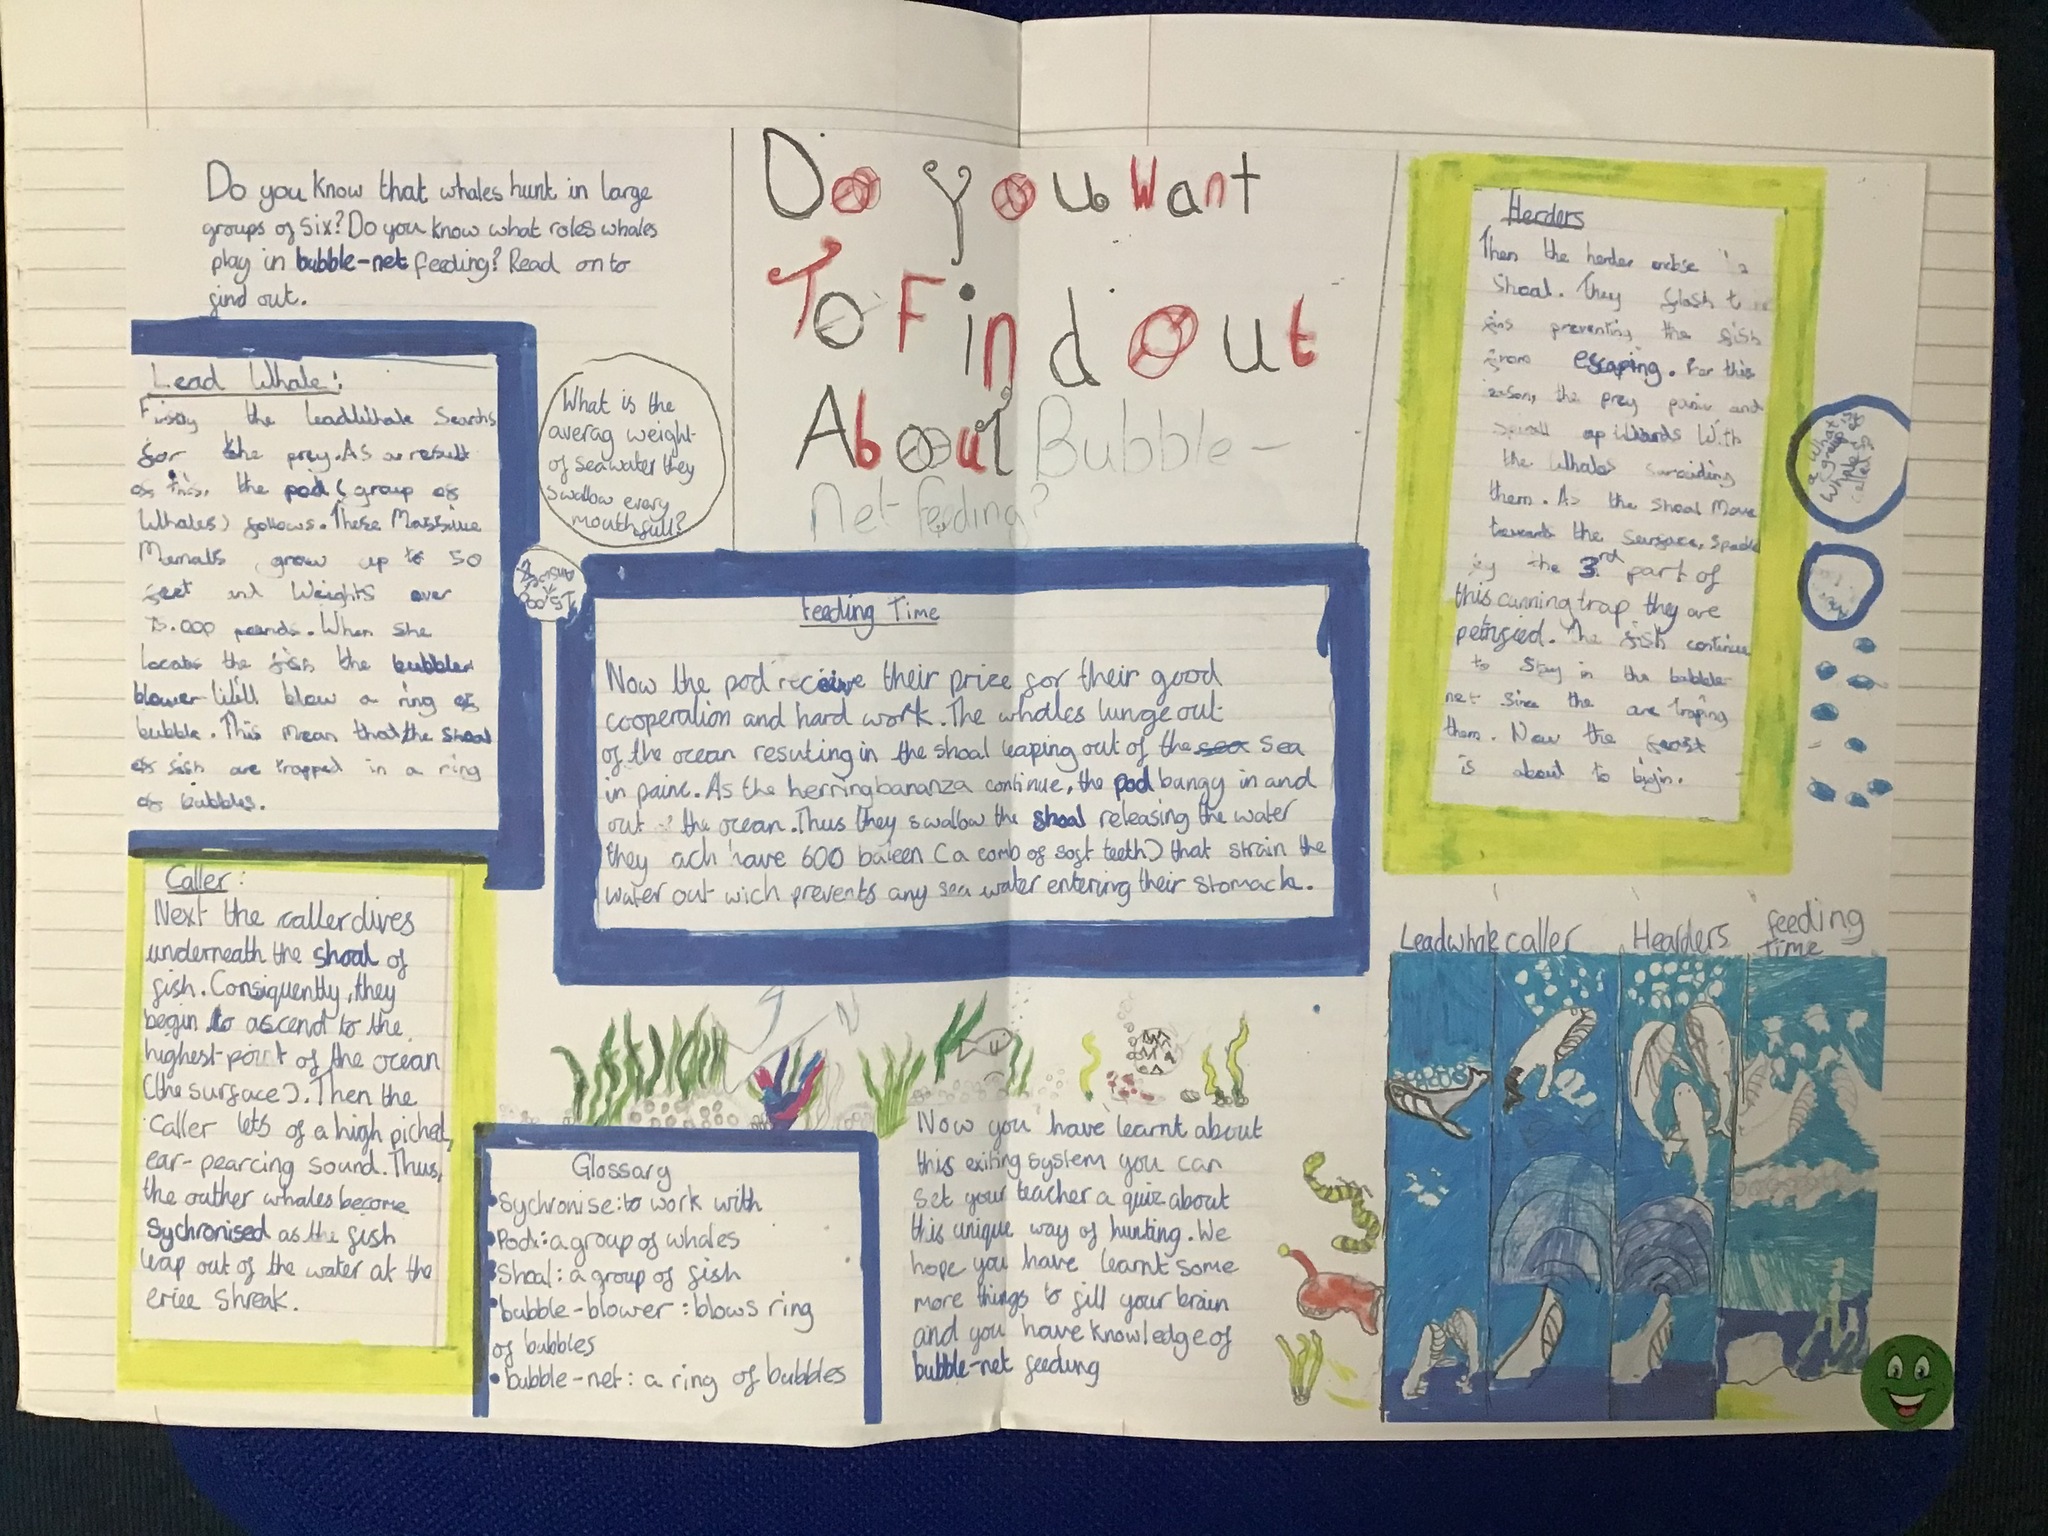 Do you know that whales hunt in large
groups of six? Do you know what roles whales
play in bubble-net feeding? Read on to
find out.
Do you Want
To Find Out
About Bubble-
Net feeding?
Lead Whale:
the leadWhale Searchs
for the prey. As a result
of this, the pod ( group of
Whales) follows. These Massive
grow up to 50
feet and Weights over
75.000 pounds. When she
the fish the bubbler
blower Will blow a ring of
bubble. This mean that the shoal
of fish are trapped in a ring
of bubbles.
What is the
averag weight
of seawater they
swallow every
mouthfull?
Caller:
Next the caller dives
underneath the shoal of
fish. Consiquently, they
begin to ascend to the
highest-point of the ocean
(the surface). Then the
caller lets of a high piched,
ear-pearcing sound. Thus,
the outher whales become
sychronised as the fish
leap out of the water at the
eriee shreak.
feeding Time
Now the pod receive their prize for their good
cooperation and hard work. The whales lunge out
of the ocean resuting in the shoal leaping out of the sea sea
in painc. As the herring bananza continue, the pod bangy in and
out the ocean. Thus they swallow the shoal releasing the water
they ach have 600 baleen (a comb of soft teeth) that strain the
water out wich prevents any sea water entering their stomack.
Glossary
• Sychronise: to work with
• Pod: a group of whales
• Shoal: a group of fish
• bubble-blower: blows ring
of bubbles
• bubble-net: a ring of bubbles
Now you have learnt about
this exiting system you can
set your teacher a quiz about
this unique way of hunting. We
hope you have learnt some
more things to fill your brain
and you have knowledge of
bubble-net feeding
Herders
Then the herder
shoal. They flash
fins preventing the fish
from escaping. For this
reason, the prey panic and
With
the Whales
them. As the shoal Move
towards the surface,
by the 3rd part of
this cunning trap they are
The fish continue
to stay in the bubble
net since the are traping
them. Now the feast
is about to begin.
What is
a group of
whales
called?
Leadwhale caller Hearders feeding
Time